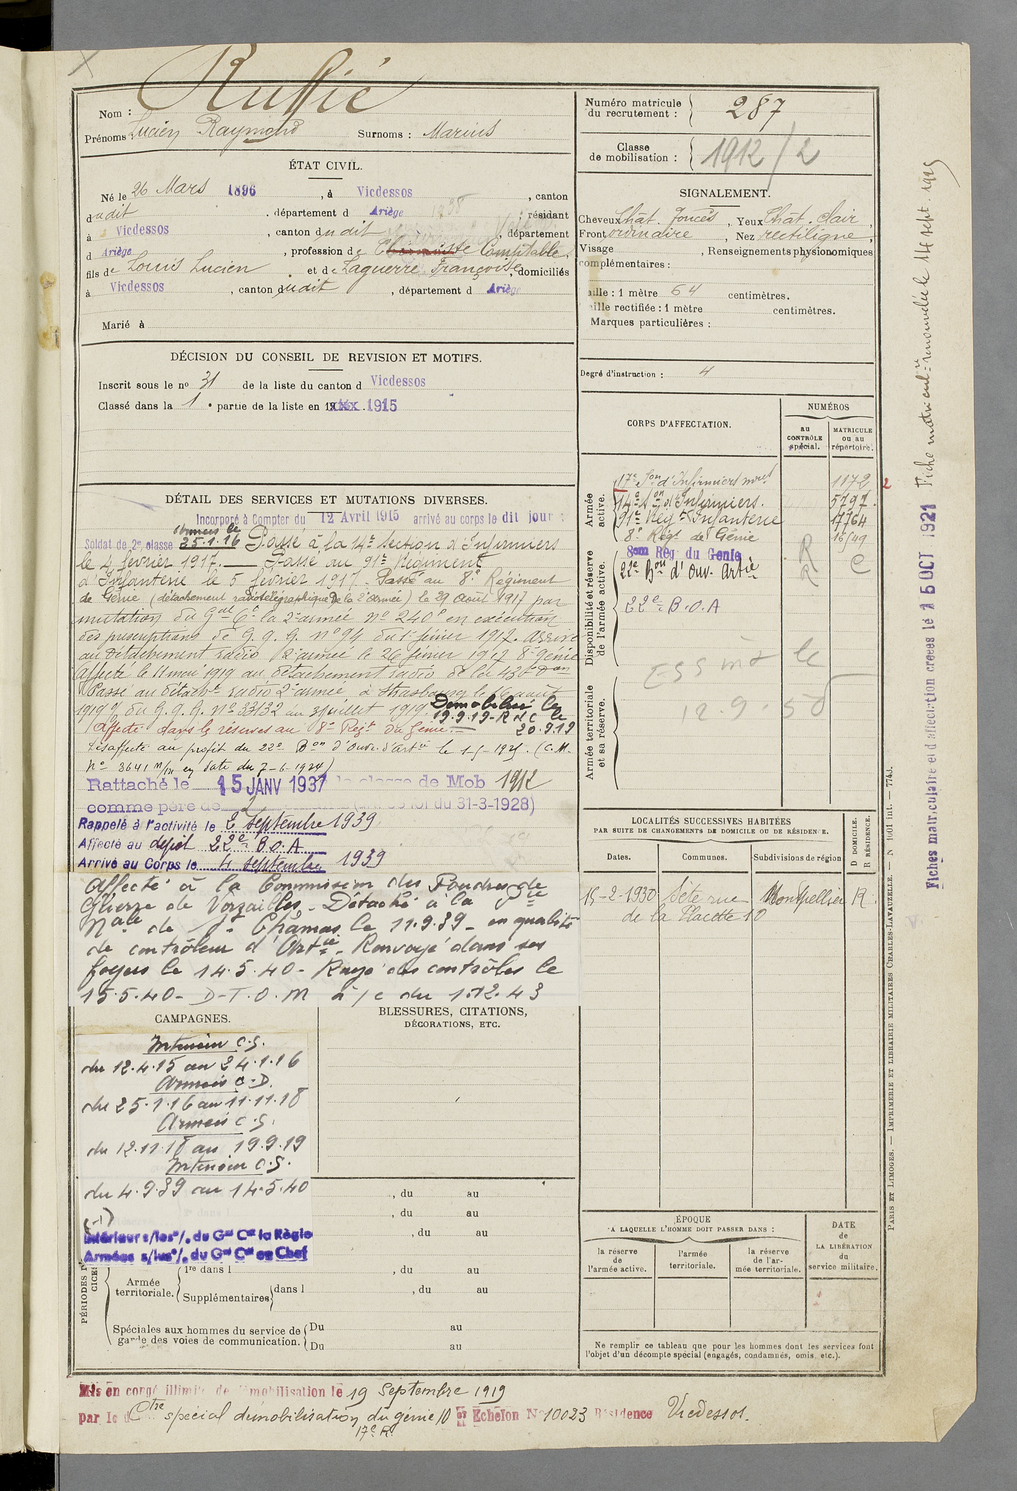 Ruffié
Nom :
Prénoms : Lucien Raymond Surnoms : Marius
ÉTAT CIVIL.
Né le 26 Mars 1896, à Vicdessos, canton
dudit, département d Ariège, résidant
à Vicdessos, canton dudit, département
d Ariège, profession de Comptable
fils de Louis Lucien et de Laguerre Françoise, domiciliés
à Vicdessos, canton dudit, département d Ariège
Marié à
DÉCISION DU CONSEIL DE REVISION ET MOTIFS.
Inscrit sous le nº 31 de la liste du canton d Vicdessos
Classé dans la 1e partie de la liste en 1915
DÉTAIL DES SERVICES ET MUTATIONS DIVERSES.
Incorporé à Compter du 12 Avril 1915 arrivé au corps le dit jour
Soldat de 2e classe Armées le 25.1.16 Passé à la 14e Section d'Infirmiers
le 4 février 1917. — Passé au 91e Régiment
d'Infanterie le 5 février 1917. Passé au 8e Régiment
de Génie (détachement radiotélégraphique de la 2e Armée) le 29 août 1917 par
mutation du Gal Ct la 2e armée Nº 240 en exécution
des prescriptions de G.Q.G. Nº 94 du 1er février 1917. Arrivé
au détachement radio 2e armée le 26 février 1917 8e génie
Affecté le 11 mai 1919 au détachement radio de la
Passé au détacht radio 2e armée à Strasbourg le
1919 du G.Q.G. Nº 33132 du 3 juillet 1919 Démobilisé le
19.9.19 - R d C le 20.9.19
Affecté dans la réserve au 8e Régt du Génie
Désaffecté au profit du 22e Bon d'Ouv. d'Artie le 1-5-1925. (C.M.
Nº 3641 M/M en date du 7-6-1924)
Rattaché le 15 JANV 1937 à la classe de Mob 1912
comme père de 2 (loi du 31-3-1928)
Rappelé à l'activité le 2 septembre 1939
Affecté au dépôt 22e B.O.A
Arrivé au Corps le 4 septembre 1939
Affecté à la Commission des Poudres de
Guerre de Versailles. Détaché à la Prie
Nale de St Chamas le 11.9.39 - en qualité
de contrôleur d'Artie - Renvoyé dans ses
foyers le 14.5.40 - Rayé des contrôles le
15.5.40 - D-T.O.M à/c du 1.12.43
CAMPAGNES.
Intérieur C.S.
du 12.4.15 au 24.1.16
Armées C.D.
du 25.1.16 au 11.11.18
Armées C.S.
du 12.11.18 au 19.9.19
Intérieur C.S.
du 4.9.39 au 14.5.40
(-1)
Intérieur s/les o/. du Gal Ct la Règle
Armées s/les o/. du Gal Ct en Chef
BLESSURES, CITATIONS,
DÉCORATIONS, ETC.
, du au
, du au
, du au
1re dans l , du au
Armée territoriale. Supplémentaires dans l , du au
Spéciales aux hommes du service de garde des voies de communication. Du au
Du au
Mis en congé illimité de démobilisation le 19 Septembre 1919
par le Ctre spécial démobilisation du génie 10 Echelon Nº 10023 Résidence Vicdessos.
17e R.
Numéro matricule du recrutement : 287
Classe de mobilisation : 1912/2
SIGNALEMENT.
Cheveux Chât. foncés, Yeux Chât. clair,
Front ordinaire, Nez rectiligne,
Visage , Renseignements physionomiques
complémentaires :
Taille : 1 mètre 64 centimètres.
Taille rectifiée : 1 mètre centimètres.
Marques particulières :
Degré d'instruction : 4
CORPS D'AFFECTATION.
NUMÉROS
AU CONTRÔLE spécial.
MATRICULE ou au répertoire.
Armée active.
17e Son d'Infirmiers mil 1172 2
14e Son d'Infirmiers. 5797
91e Régt Infanterie 17764
8e Régt de Génie
Disponibilité et réserve de l'armée active.
8em Rég du Genie
22e Bon d'Ouv. Artie
22e B.O.A
Armée territoriale et sa réserve.
12.9.50
LOCALITÉS SUCCESSIVES HABITÉES
PAR SUITE DE CHANGEMENTS DE DOMICILE OU DE RÉSIDENCE.
Dates. Communes. Subdivisions de région. D DOMICILE. R RÉSIDENCE.
15-2-1930 Sète rue Montpellier R.
de la Placette 10
ÉPOQUE
A LAQUELLE L'HOMME DOIT PASSER DANS :
la réserve de l'armée active.
l'armée territoriale.
la réserve de l'armée territoriale.
DATE de LA LIBÉRATION du service militaire.
Ne remplir ce tableau que pour les hommes dont les services font
l'objet d'un décompte spécial (engagés, condamnés, omis, etc.).
Fiches matriculaire et d'affectation créées le 15 OCT 1921 Fiche matricule renouvelée le 14 sept. 1925
PARIS ET LIMOGES. — IMPRIMERIE ET LIBRAIRIE MILITAIRES CHARLES-LAVAUZELLE. — N 1601 Int. — 7743.